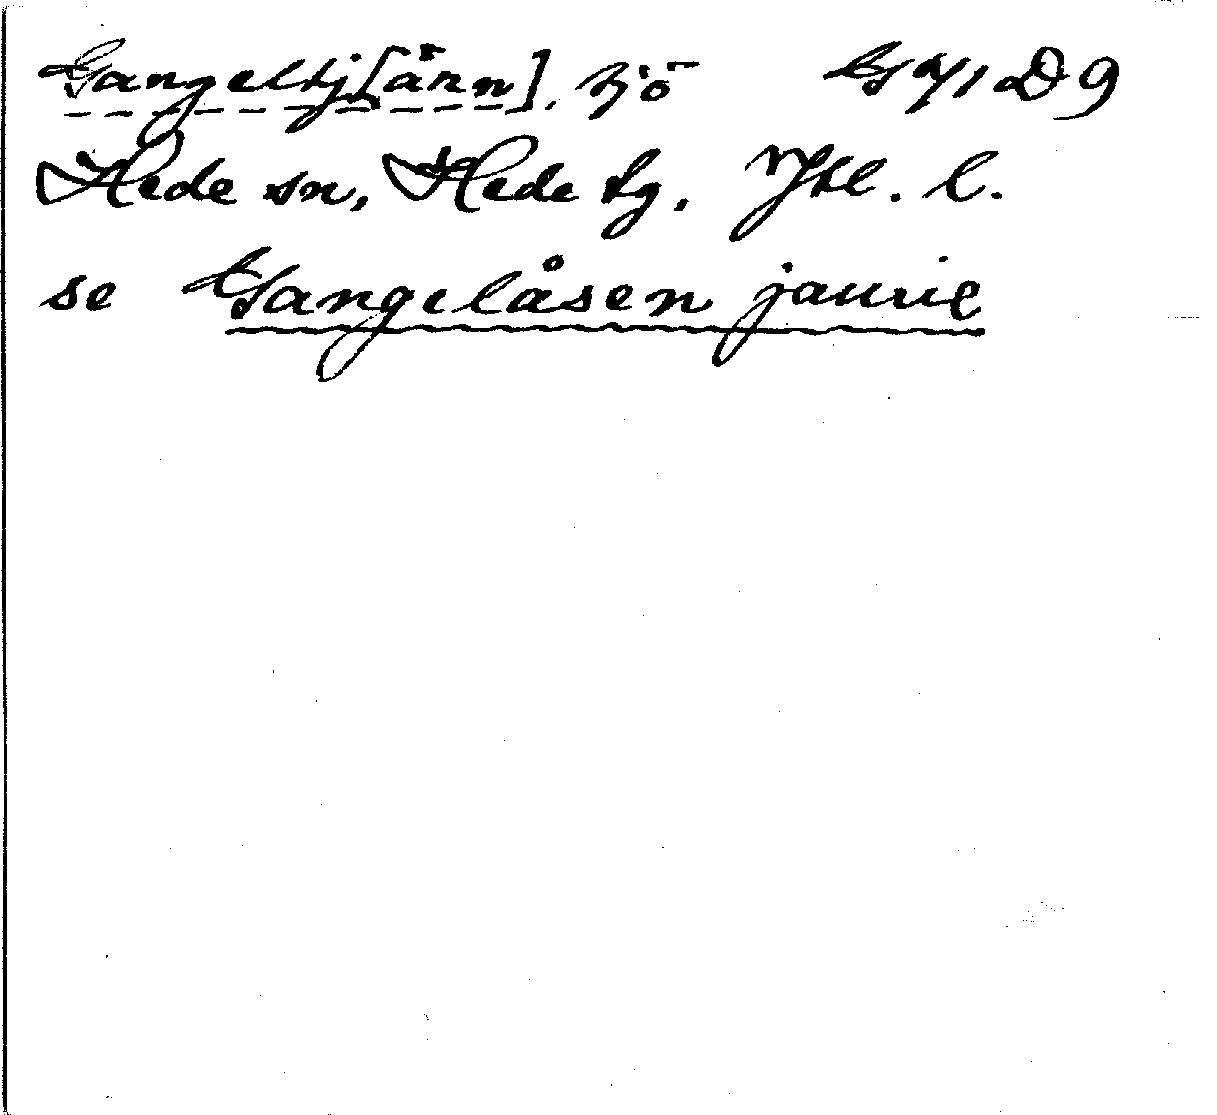 Gangeltj[ärn], sjö D9
Hede sn, Hede tg, Jtl. l.
se Gangelåsen jaurie